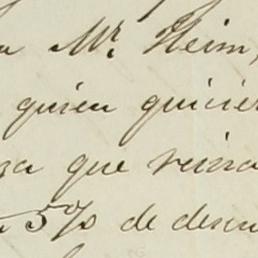 Mr. Heim,
quien quicier
que reina
5% de descu